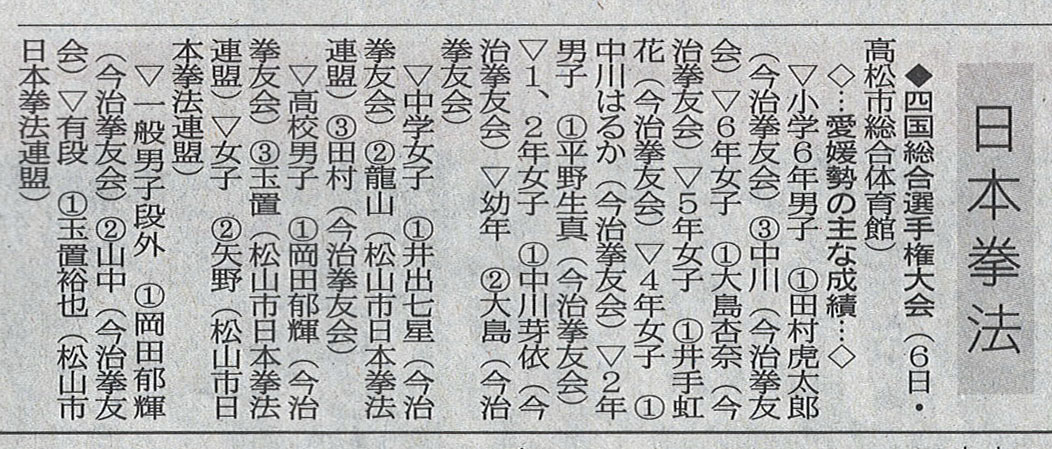 日本拳法
◆四国総合選手権大会（6日・
高松市総合体育館）
◇…愛媛勢の主な成績…◇
▽小学6年男子　①田村虎太郎
（今治拳友会）③中川（今治拳友
会）▽6年女子　①大島杏奈（今
治拳友会）▽5年女子　①井手虹
花（今治拳友会）▽4年女子　①
中川はるか（今治拳友会）▽2年
男子　①平野生真（今治拳友会）
▽1、2年女子　①中川芽依（今
治拳友会）▽幼年　②大島（今治
拳友会）
▽中学女子　①井出七星（今治
拳友会）②龍山（松山市日本拳法
連盟）③田村（今治拳友会）
▽高校男子　①岡田郁輝（今治
拳友会）③玉置（松山市日本拳法
連盟）▽女子　②矢野（松山市日
本拳法連盟）
▽一般男子段外　①岡田郁輝
（今治拳友会）②山中（今治拳友
会）▽有段　①玉置裕也（松山市
日本拳法連盟）